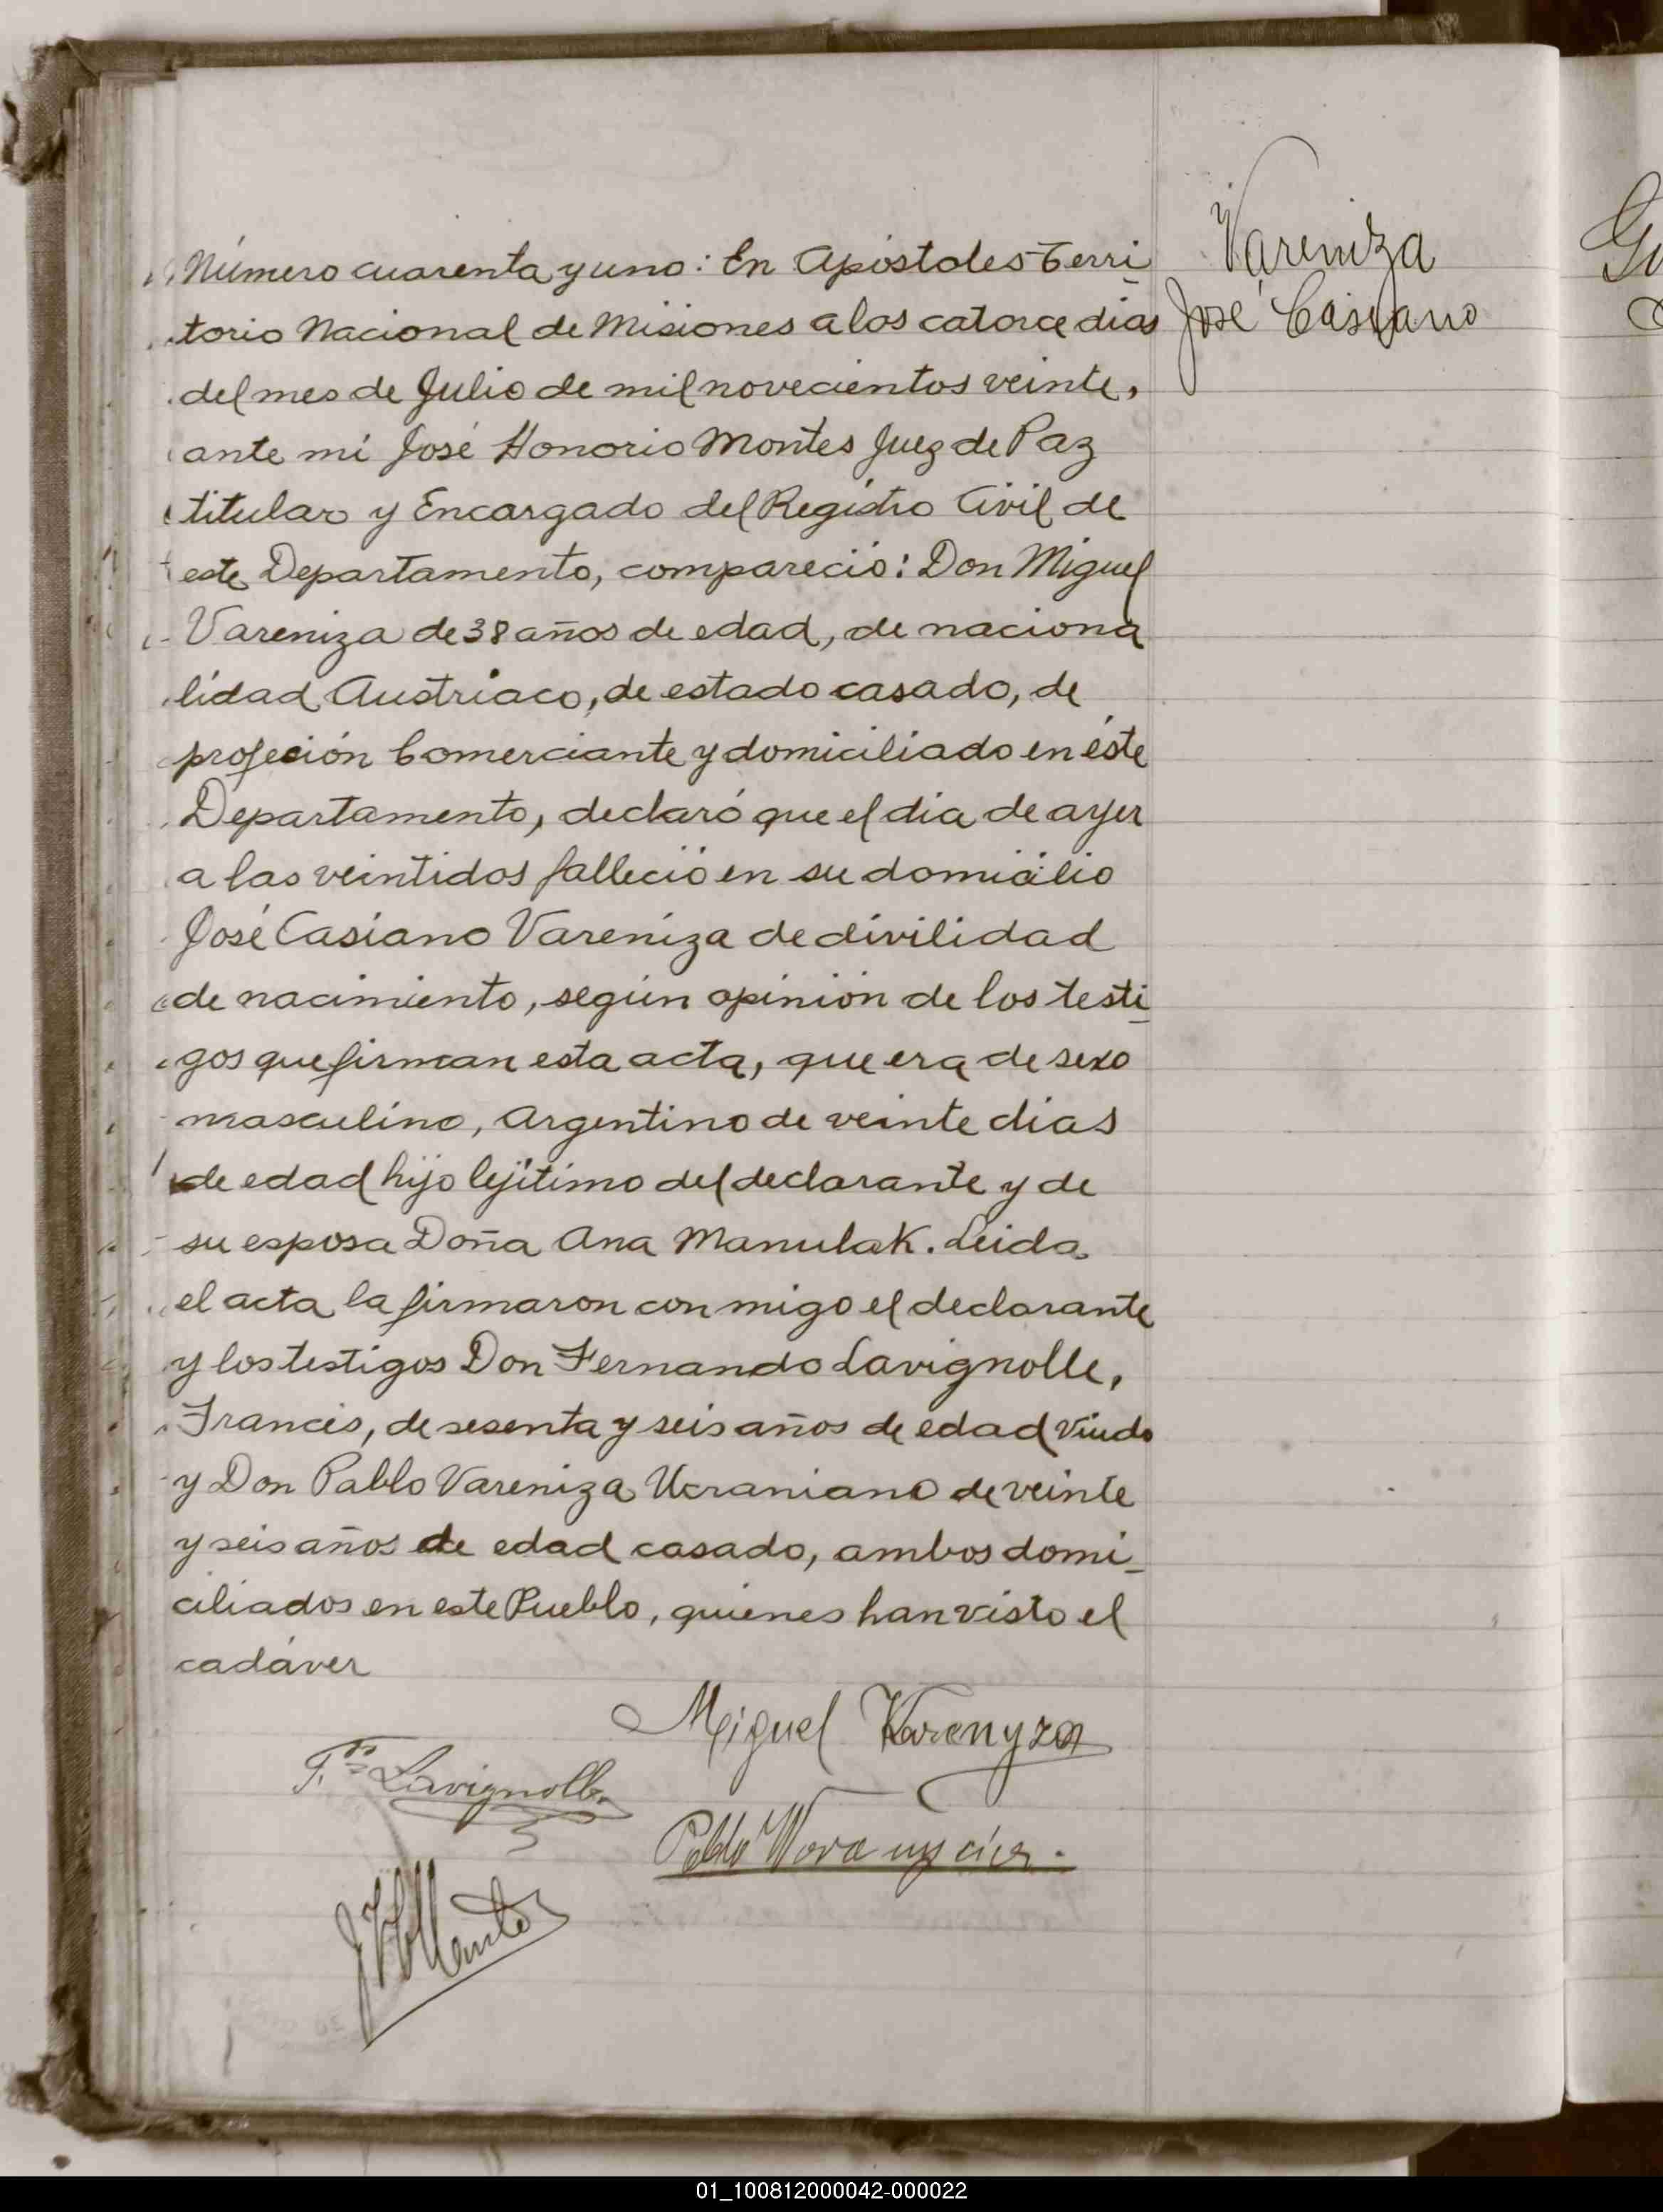 Vareniza
José Casiano
Número cuarenta y uno: En Apóstoles Terri
torio Nacional de Misiones a los catorce dias
del mes de Julio de mil novecientos veinte,
ante mi José Honorio Montes Juez de Paz
titular y Encargado del Registro Civil de
este Departamento, compareció: Don Miguel
Vareniza de 38 años de edad, de naciona
lidad Austriaco, de estado casado, de
profeción Comerciante y domiciliado en éste
Departamento, declaró que el dia de ayer
a las veintidos falleció en su domicilio
José Casiano Vareniza de divilidad
de nacimiento, según opinión de los testi_
gos que firman esta acta, que era de sexo
masculino, Argentino de veinte dias
de edad hijo lejitimo del declarante y de
su esposa Doña Ana Manulak. Leida
el acta la firmaron con migo el declarante
y los testigos Don Fernando Lavignolle,
Francés, de sesenta y seis años de edad viudo
y Don Pablo Vareniza Ucraniano de veinte
y seis años de edad casado, ambos domi_
ciliados en este Pueblo, quienes han visto el
cadáver
Miguel Warenyza
F. Lavignolle
Pablo
JHMontes
01_100812000042-000022